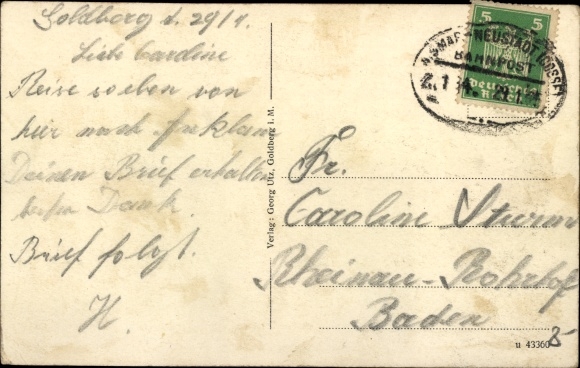 Goldberg d. 29/1.
Liebe Caroline
Reise soeben von
hier nach Anklam
Deinen Brief erhalten
besten Dank.
Brief folgt.
H.
Verlag: Georg Utz, Goldberg i. M.
5 5
Deutsches Reich
WISMAR-NEUSTADT (DOSSE)
BAHNPOST
Fr.
Caroline Sturm
Rheinau-Rohrhof
Baden
u 43360